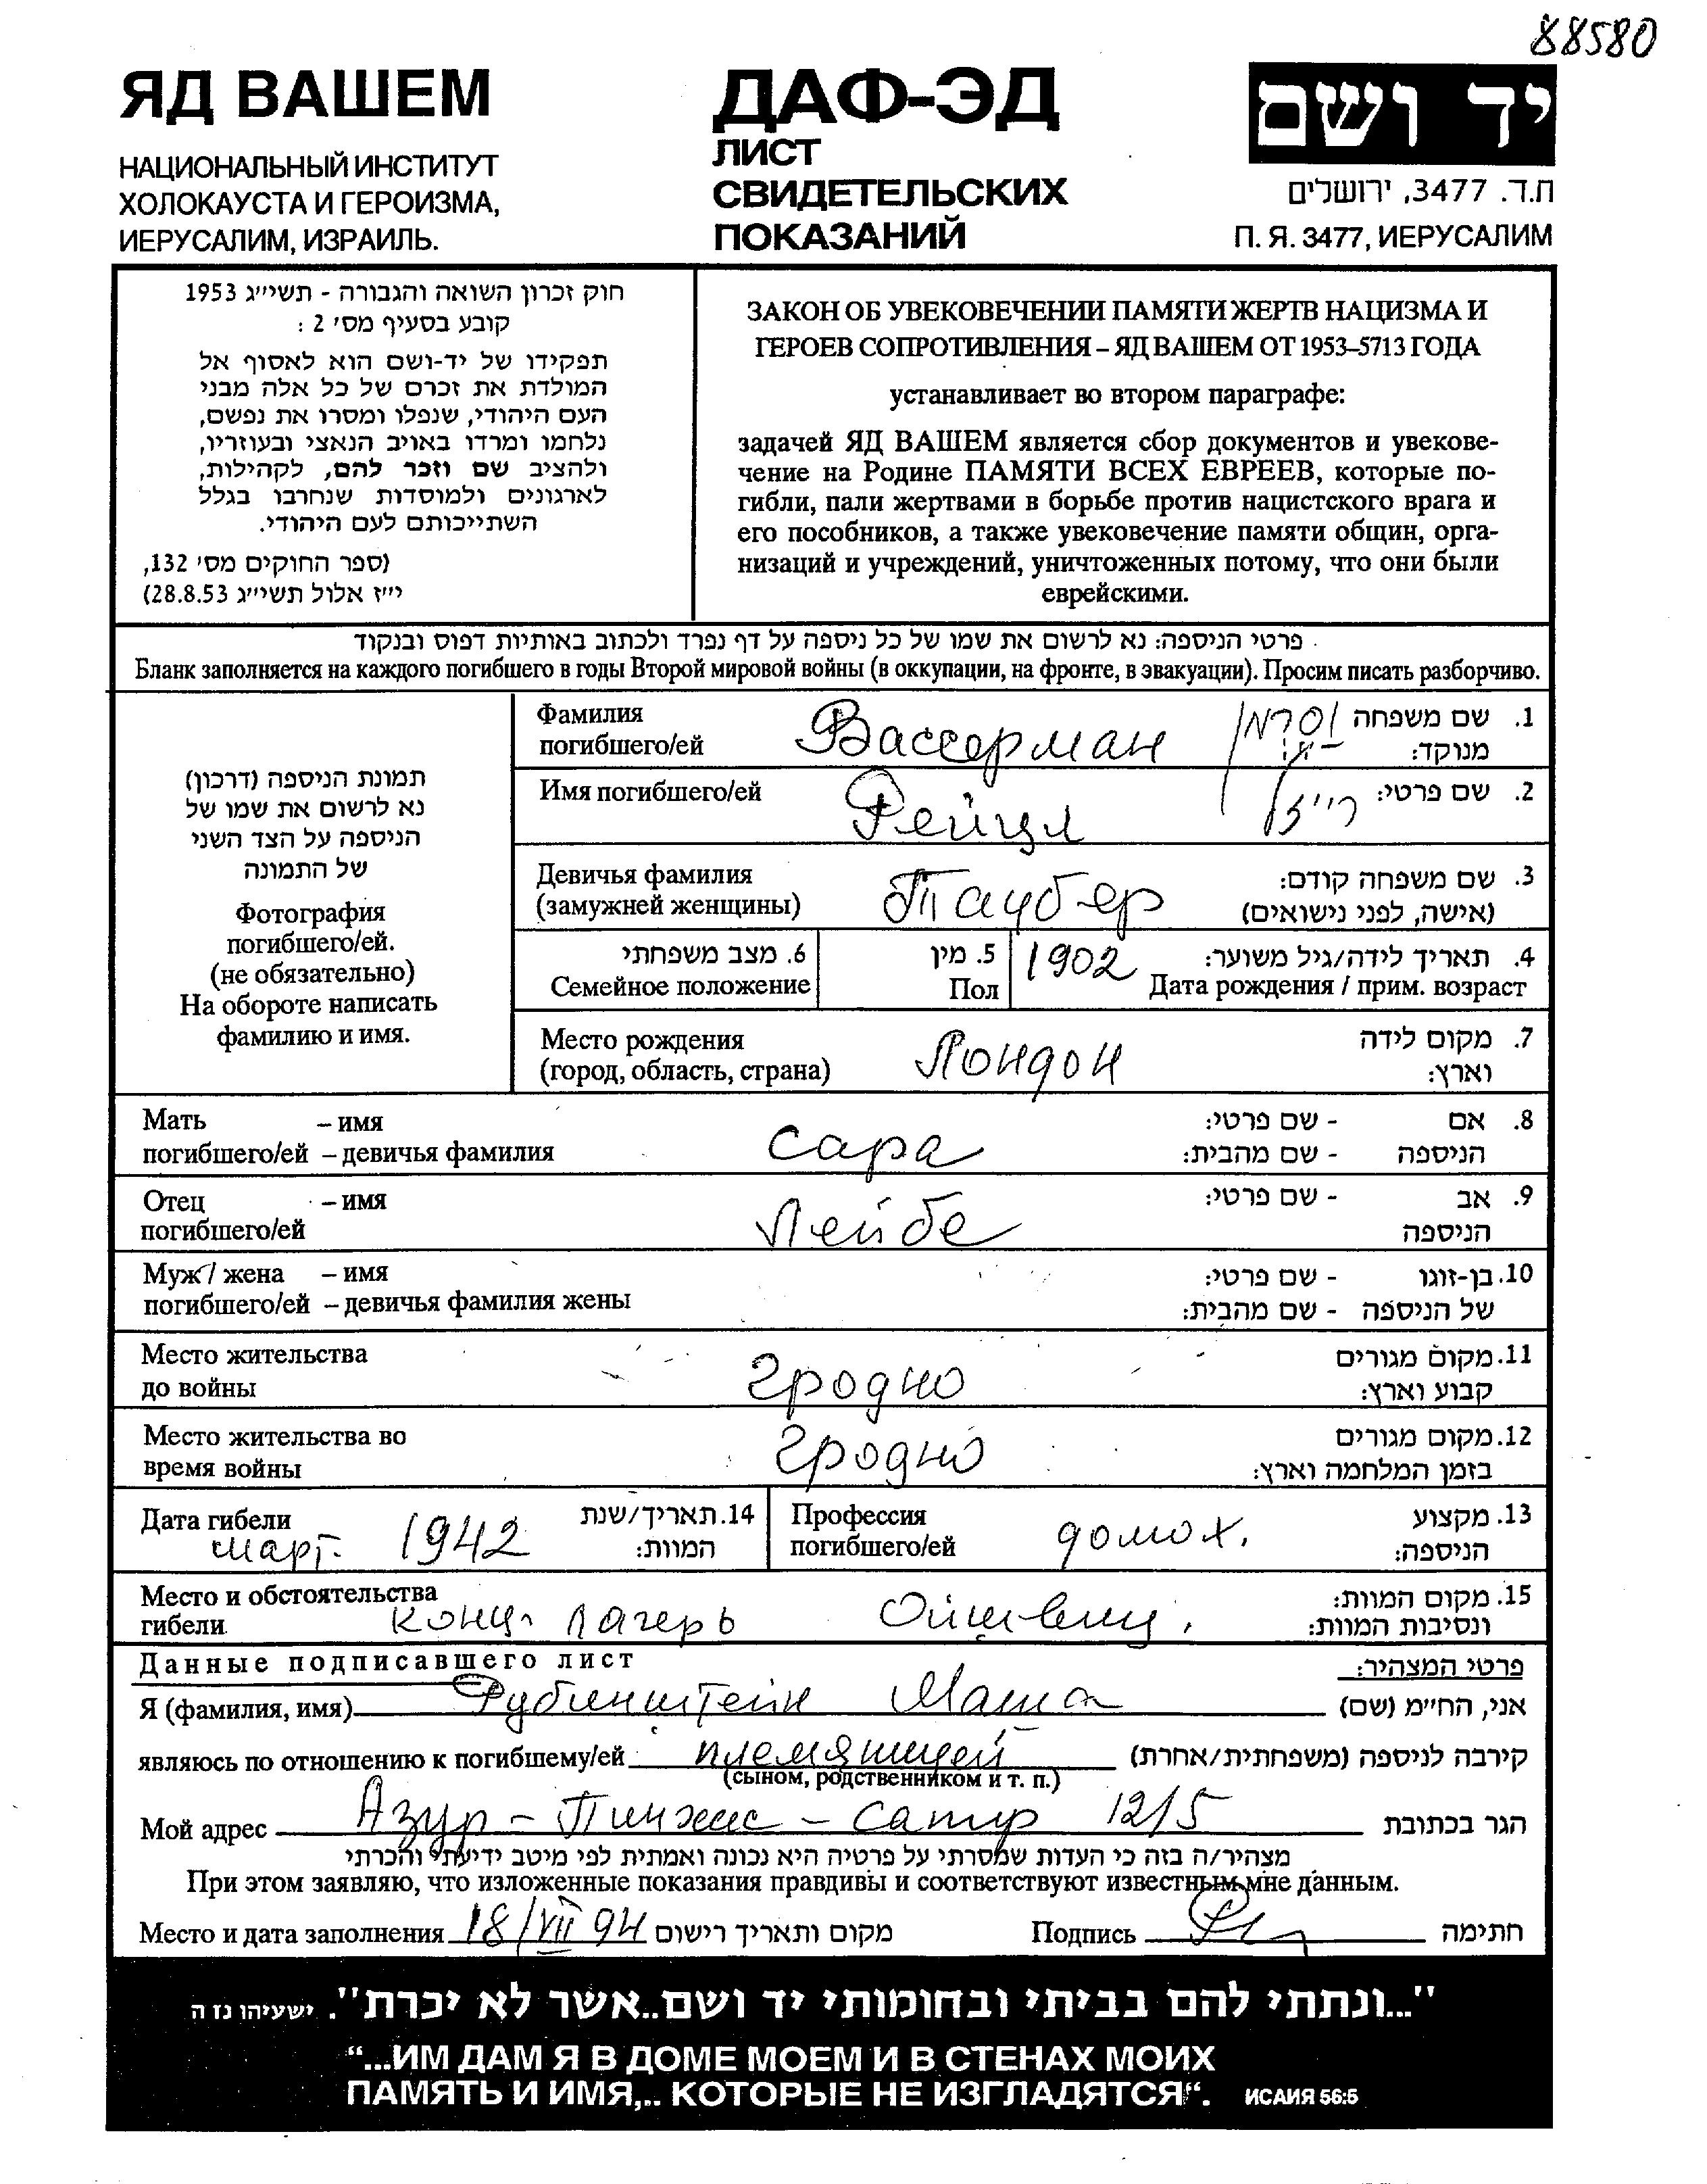 88580
ЯД ВАШЕМ
НАЦИОНАЛЬНЫЙ ИНСТИТУТ
ХОЛОКАУСТА И ГЕРОИЗМА,
ИЕРУСАЛИМ, ИЗРАИЛЬ.
ДАФ-ЭД
ЛИСТ
СВИДЕТЕЛЬСКИХ
ПОКАЗАНИЙ
יד ושם
ת.ד. 3477, ירושלים
П. Я. 3477, ИЕРУСАЛИМ
חוק זכרון השואה והגבורה - תשי״ג 1953
קובע בסעיף מס׳ 2 :
תפקידו של יד-ושם הוא לאסוף אל
המולדת את זכרם של כל אלה מבני
העם היהודי, שנפלו ומסרו את נפשם,
נלחמו ומרדו באויב הנאצי ובעוזריו,
ולהציב שם וזכר להם, לקהילות,
לארגונים ולמוסדות שנחרבו בגלל
השתייכותם לעם היהודי.
(ספר החוקים מס׳ 132,
י״ז אלול תשי״ג 28.8.53)
ЗАКОН ОБ УВЕКОВЕЧЕНИИ ПАМЯТИ ЖЕРТВ НАЦИЗМА И
ГЕРОЕВ СОПРОТИВЛЕНИЯ – ЯД ВАШЕМ ОТ 1953–5713 ГОДА
устанавливает во втором параграфе:
задачей ЯД ВАШЕМ является сбор документов и увекове-
чение на Родине ПАМЯТИ ВСЕХ ЕВРЕЕВ, которые по-
гибли, пали жертвами в борьбе против нацистского врага и
его пособников, а также увековечение памяти общин, орга-
низаций и учреждений, уничтоженных потому, что они были
еврейскими.
פרטי הניספה: נא לרשום את שמו של כל ניספה על דף נפרד ולכתוב באותיות דפוס ובנקוד
Бланк заполняется на каждого погибшего в годы Второй мировой войны (в оккупации, на фронте, в эвакуации). Просим писать разборчиво.
תמונת הניספה (דרכון)
נא לרשום את שמו של
הניספה על הצד השני
של התמונה
Фотография
погибшего/ей.
(не обязательно)
На обороте написать
фамилию и имя.
Фамилия погибшего/ей Вассерман 1. שם משפחה מנוקד:
Имя погибшего/ей Рейцл 2. שם פרטי:
Девичья фамилия Таубер 3. שם משפחה קודם:
(замужней женщины) (אישה, לפני נישואים)
6. מצב משפחתי 5. מין 1902 4. תאריך לידה/גיל משוער:
Семейное положение Пол Дата рождения / прим. возраст
Место рождения Лондон 7. מקום לידה
(город, область, страна) וארץ:
Мать – имя Сара 8. אם - שם פרטי:
погибшего/ей – девичья фамилия הניספה - שם מהבית:
Отец – имя Лейбе 9. אב - שם פרטי:
погибшего/ей הניספה
Муж / жена – имя 10. בן-זוגו - שם פרטי:
погибшего/ей – девичья фамилия жены של הניספה - שם מהבית:
Место жительства Гродно 11. מקום מגורים
до войны קבוע וארץ:
Место жительства во Гродно 12. מקום מגורים
время войны בזמן המלחמה וארץ:
Дата гибели 14. תאריך/שנת Профессия 13. מקצוע
март. 1942 המוות: погибшего/ей домох. הניספה:
Место и обстоятельства 15. מקום המוות:
гибели конц. лагерь Ойшвенц. ונסיבות המוות:
Данные подписавшего лист פרטי המצהיר:
Я (фамилия, имя) Рубинштейн Маша אני, הח״מ (שם)
являюсь по отношению к погибшему/ей племянницей קירבה לניספה (משפחתית/אחרת)
(сыном, родственником и т. п.)
Мой адрес Азур – Пинхас – Сапир 12/5 הגר בכתובת
מצהיר/ה בזה כי העדות שמסרתי על פרטיה היא נכונה ואמתית לפי מיטב ידיעתי והכרתי
При этом заявляю, что изложенные показания правдивы и соответствуют известным мне данным.
Место и дата заполнения 18/VII 94 מקום ותאריך רישום Подпись חתימה
"...ונתתי להם בביתי ובחומותי יד ושם..אשר לא יכרת". ישעיהו נז ה
“...ИМ ДАМ Я В ДОМЕ МОЕМ И В СТЕНАХ МОИХ
ПАМЯТЬ И ИМЯ,.. КОТОРЫЕ НЕ ИЗГЛАДЯТСЯ“. ИСАИЯ 56:5